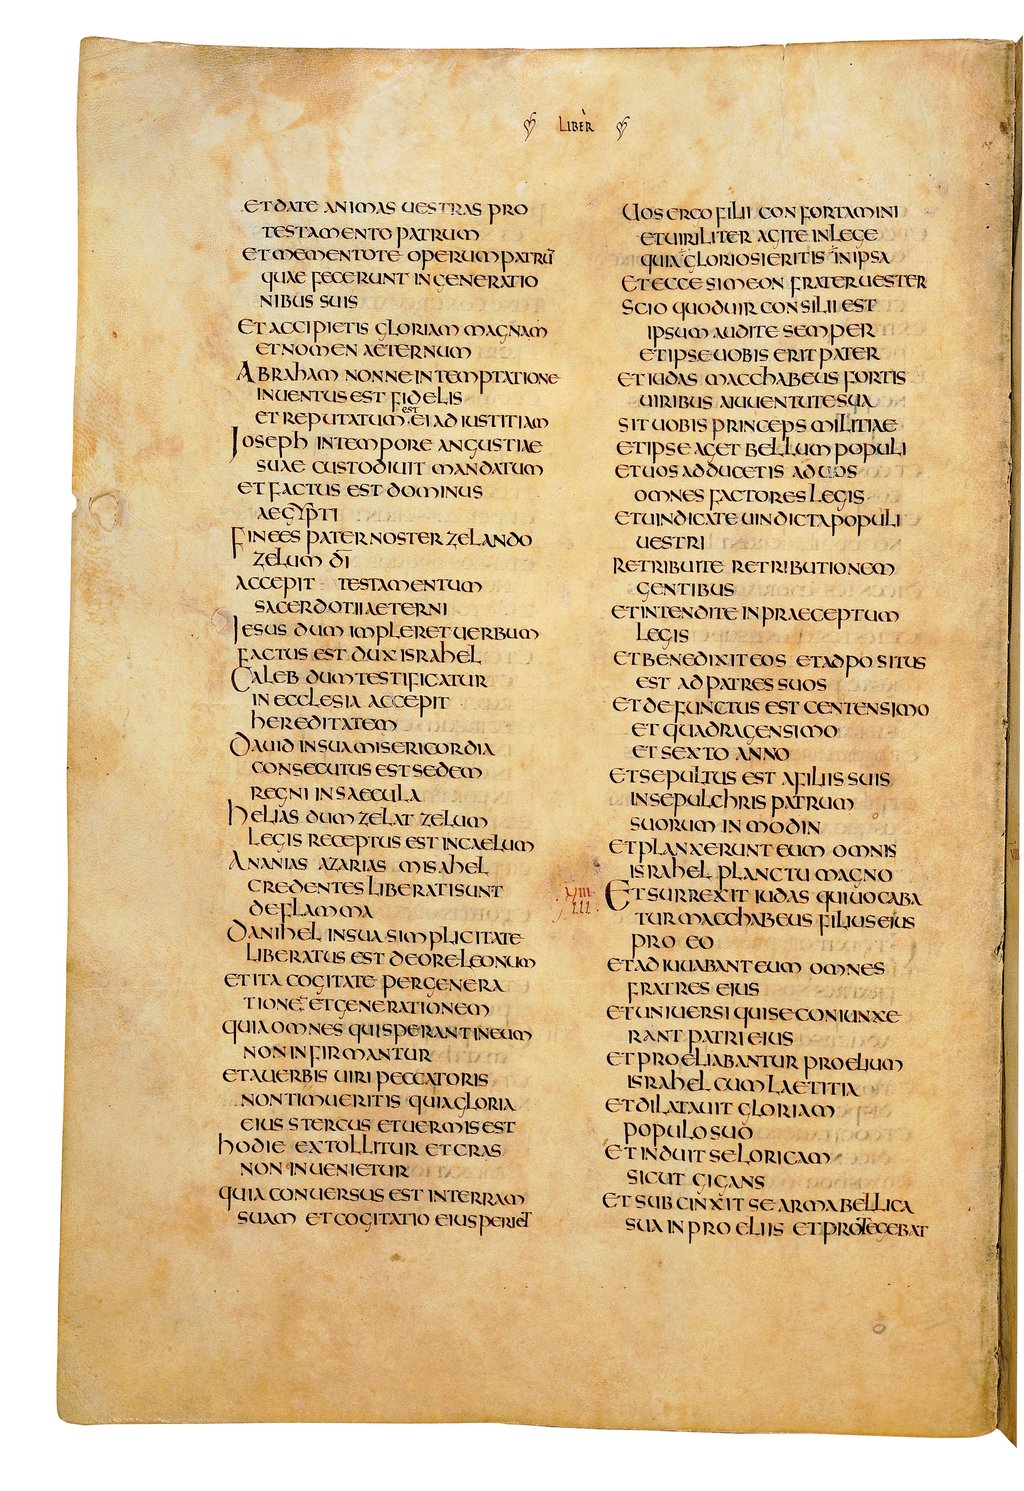 LIBER
ET DATE ANIMAS UESTRAS PRO
TESTAMENTO PATRUM
ET MEMENTOTE OPERUM PATRŪ
QUAE FECERUNT IN GENERATIO
NIBUS SUIS
ET ACCIPIETIS GLORIAM MAGNAM
ET NOMEN AETERNUM
ABRAHAM NONNE IN TEMPTATIONE
INUENTUS EST FIDELIS
ET REPUTATUM EST EI AD IUSTITIAM
IOSEPH IN TEMPORE ANGUSTIAE
SUAE CUSTODIUIT MANDATUM
ET FACTUS EST DOMINUS
AEGYPTI
FINEES PATER NOSTER ZELANDO
ZELUM DĪ
ACCEPIT TESTAMENTUM
SACERDOTII AETERNI
IESUS DUM IMPLERET UERBUM
FACTUS EST DUX ISRAHEL
CALEB DUM TESTIFICATUR
IN ECCLESIA ACCEPIT
HEREDITATEM
DAUID IN SUA MISERICORDIA
CONSECUTUS EST SEDEM
REGNI IN SAECULA
HELIAS DUM ZELAT ZELUM
LEGIS RECEPTUS EST IN CAELUM
ANANIAS AZARIAS MISAHEL
CREDENTES LIBERATI SUNT
DE FLAMMA
DANIHEL IN SUA SIMPLICITATE
LIBERATUS EST DE ORE LEONUM
ET ITA COGITATE PER GENERA
TIONE ET GENERATIONEM
QUIA OMNES QUI SPERANT IN EUM
NON INFIRMANTUR
ET A UERBIS UIRI PECCATORIS
NON TIMUERITIS QUIA GLORIA
EIUS STERCUS ET UERMIS EST
HODIE EXTOLLITUR ET CRAS
NON INUENIETUR
QUIA CONUERSUS EST IN TERRAM
SUAM ET COGITATIO EIUS PERIET
UOS ERGO FILII CONFORTAMINI
ET UIRILITER AGITE IN LEGE
QUIA GLORIOSI ERITIS IN IPSA
ET ECCE SIMEON FRATER UESTER
SCIO QUOD UIR CONSILII EST
IPSUM AUDITE SEMPER
ET IPSE UOBIS ERIT PATER
ET IUDAS MACCHABEUS FORTIS
UIRIBUS A IUUENTUTE SUA
SIT UOBIS PRINCEPS MILITIAE
ET IPSE AGET BELLUM POPULI
ET UOS ADDUCETIS AD UOS
OMNES FACTORES LEGIS
ET UINDICATE UINDICTA POPULI
UESTRI
RETRIBUITE RETRIBUTIONEM
GENTIBUS
ET INTENDITE IN PRAECEPTUM
LEGIS
ET BENEDIXIT EOS ET ADPOSITUS
EST AD PATRES SUOS
ET DEFUNCTUS EST CENTENSIMO
ET QUADRAGENSIMO
ET SEXTO ANNO
ET SEPULTUS EST A FILIIS SUIS
IN SEPULCHRIS PATRUM
SUORUM IN MODIN
ET PLANXERUNT EUM OMNIS
ISRAHEL PLANCTU MAGNO
ET SURREXIT IUDAS QUI UOCABA
TUR MACCHABEUS FILIUS EIUS
PRO EO
ET ADIUUABANT EUM OMNES
FRATRES EIUS
ET UNIUERSI QUI SE CONIUNXE
RANT PATRI EIUS
ET PROELIABANTUR PROELIUM
ISRAHEL CUM LAETITIA
ET DILATAUIT GLORIAM
POPULO SUO
ET INDUIT SE LORICAM
SICUT GIGANS
ET SUBCINXIT SE ARMA BELLICA
SUA IN PROELIIS ET PROTEGEBAT